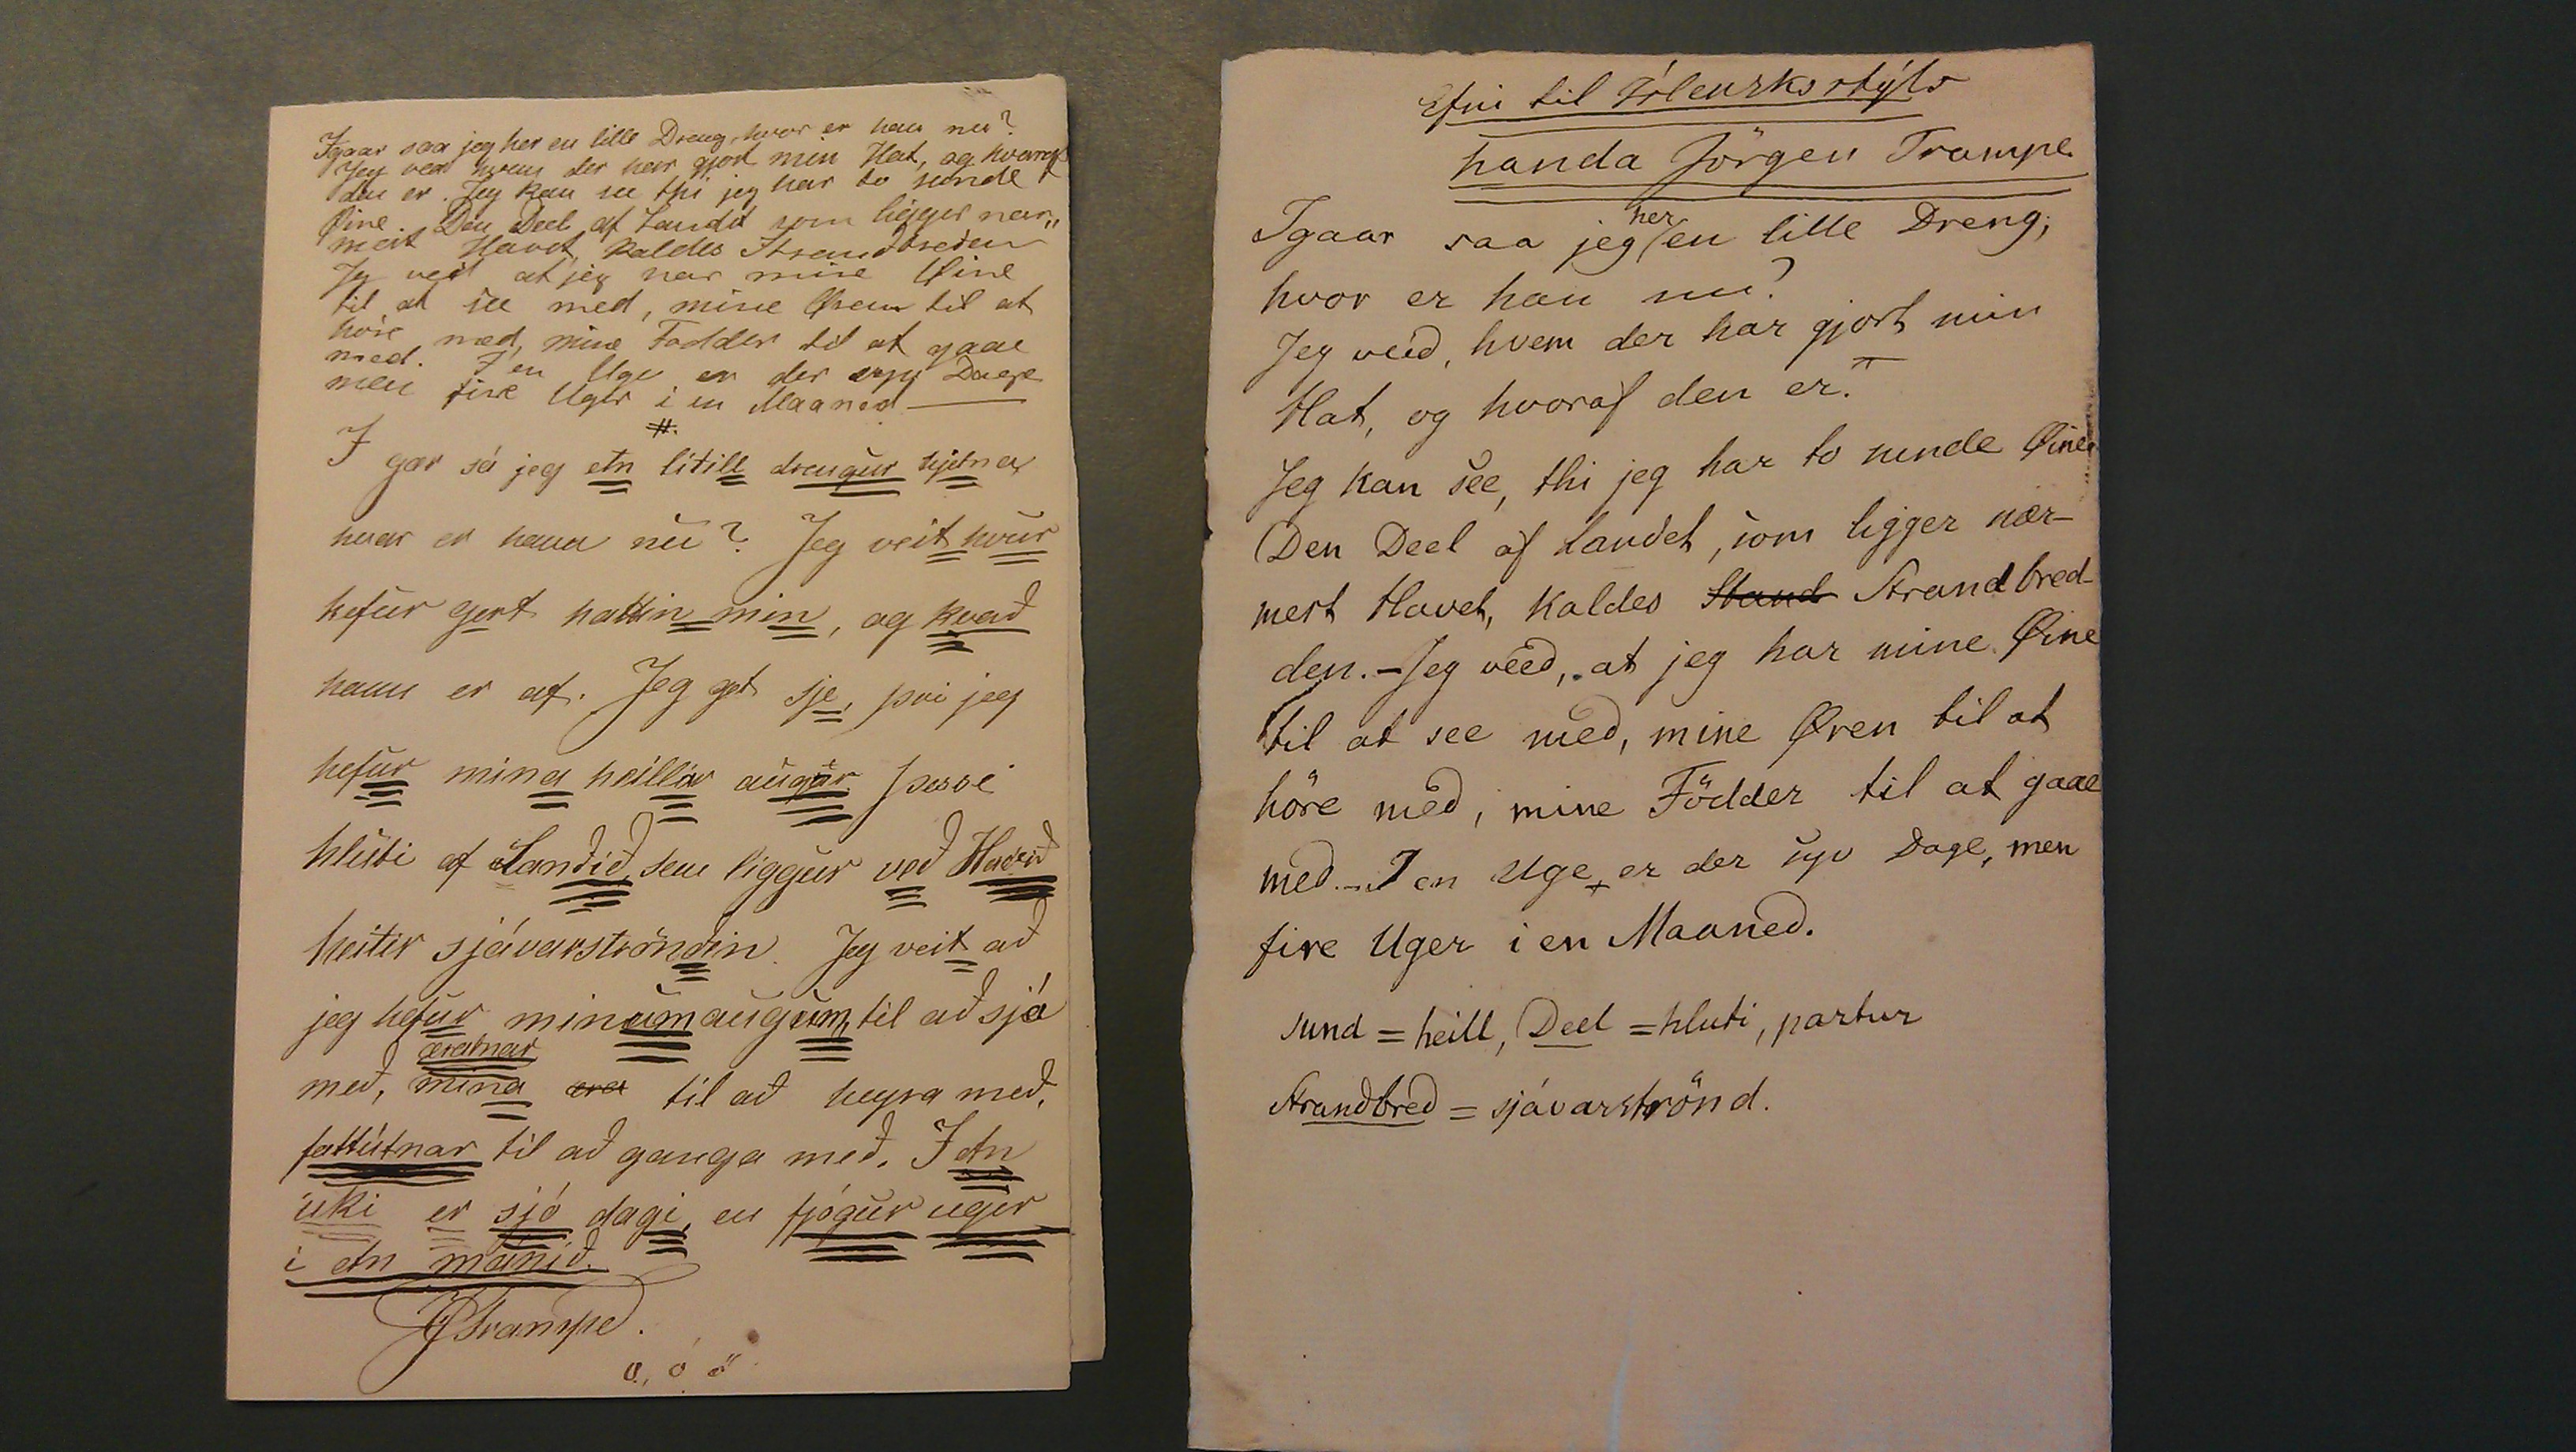 Igaar saa jeg her en lille Dreng, hvor er han nu?
Jeg ved hvem der har gjort min Hat, og hvoraf
den er. Jeg kan see thi jeg har to sunde
Øine. Den Deel af Landet som ligger nær„
mest Havet, kaldes Strandbreden
Jeg veed at jeg har mine Øine
til at see med, mine Øren til at
høre med, mine Fødder til at gaae
med. I en Uge er der syv Dage
men fire Uger i en Maaned
#.
I gær sá jeg etn lítill drengur hjetna,
hvar er hann nú? Jeg veit hvur
hefur gert hattin min, og kvað
hann er af. Jeg get sje, því jeg
hefur mina heillar augur. þessi
hluti af Landið, sem liggur með Havið
heitir sjávarströndin. Jeg veit að
jeg hefur minum augum, til að sjá
með, mina til að heyra með,
fottútnar til að ganga með. I etn
úki er sjó dagi, en fjógur ugir
i etn mánið.
JTrampe.
o, ó ö
Efni til Íslenzks stýls
handa Jörgen Trampe.
Igaar saa jeg her en lille Dreng;
hvor er han nu?
Jeg veed, hvem der har gjort min
Hat, og hvoraf den er.
Jeg kan see, thi jeg har to sunde Øine.
Den Deel af Landet, som ligger nær-
mest Havet, kaldes Stand Strandbred-
den. - Jeg veed, at jeg har mine Øine
til at see med, mine Øren til at
höre med, mine Födder til at gaae
med. - I en Uge er der syv Dage, men
fire Uger i en Maaned.
sund = heill, Deel = hluti, partur
Strandbred = sjávarströnd.